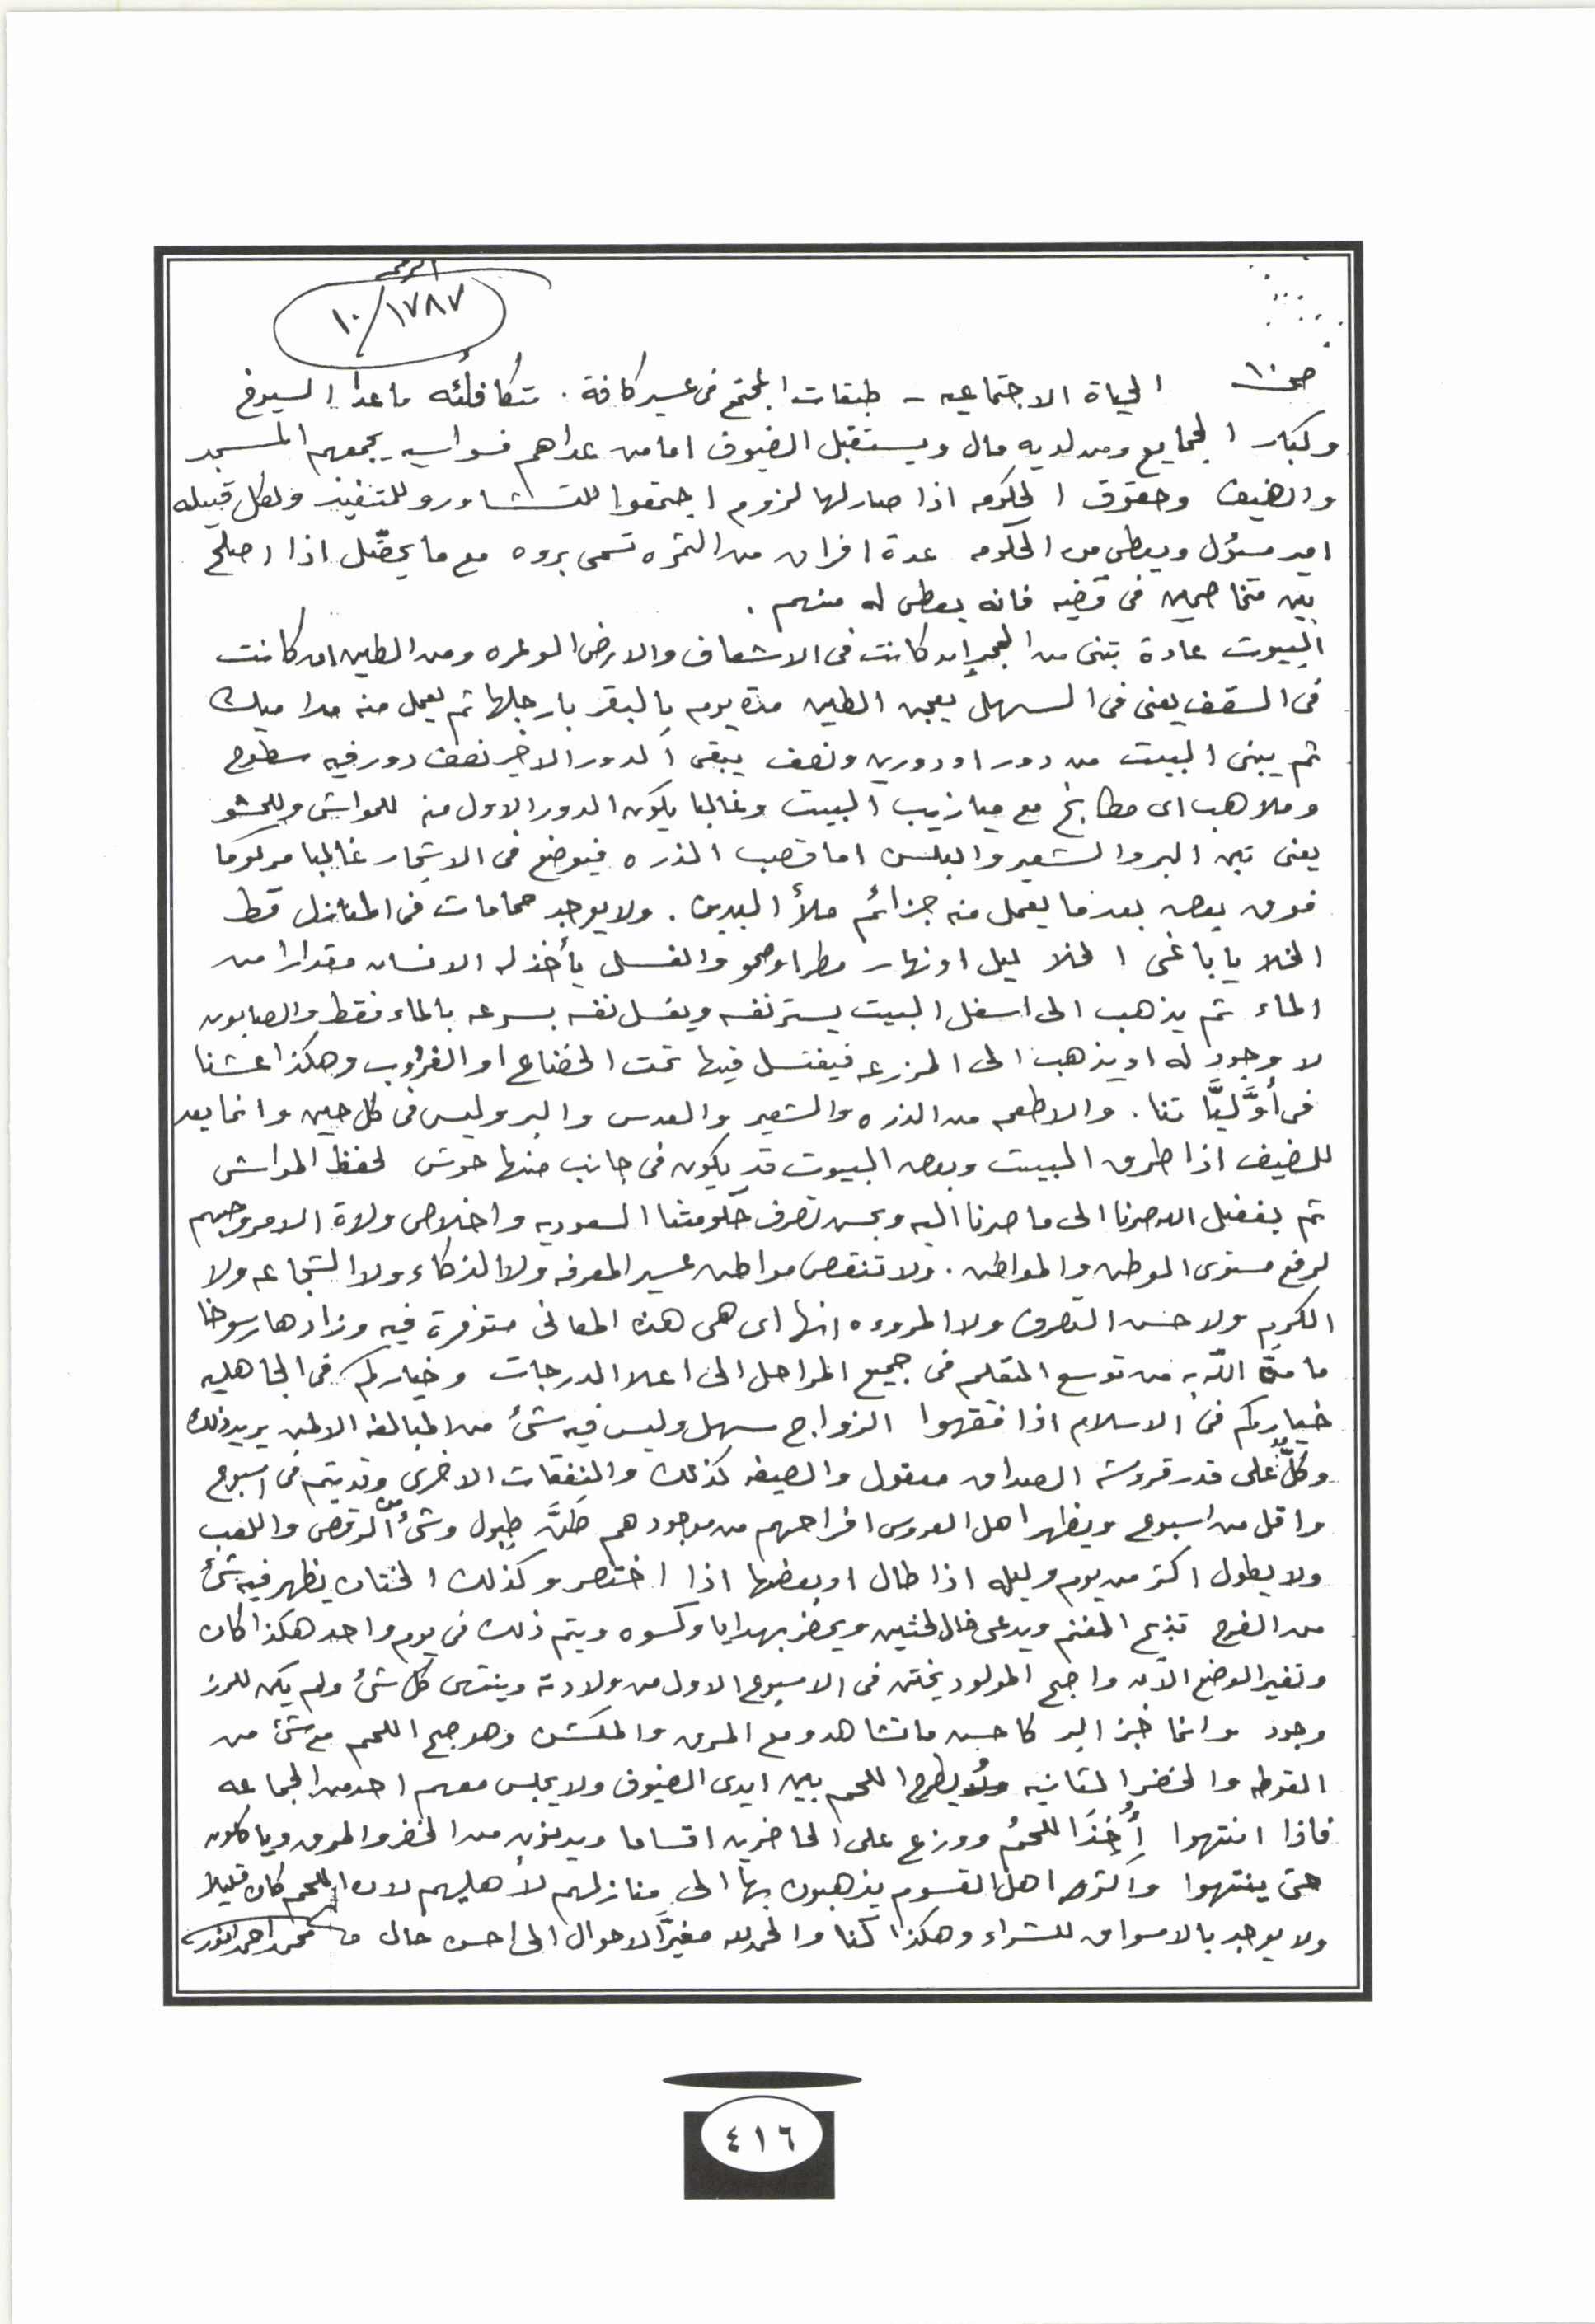 الرقم
١٠/١٧٨٧
صـ١٠ الحياة الاجتماعيه - طبقات المجتمع فى عسير كافة. متكافئه ما عدا الشيوخ
وكبار الجمايع ومن لديه مال ويستقبل الضيوف اما من عداهم فسواسيه يجمعهم المسجد
والضيف وحقوق الحكومه اذا صار لها لزوم اجتمعوا للتشاور وللتنفيذ ولكل قبيله
امير مسؤل ويعطى من الحكومه عدة افراق من الثمره تسمى بروه مع ما يحصّل اذا اصلح
بين متخاصمين فى قضيه فانه يعطى له منهم .
البيوت عادة تبنى من الحجر إن كانت فى الاشعاف والارض الوعره ومن الطين ان كانت
فى السقف يعنى فى السهل يعجن الطين مدة يوم بالبقر بارجلها ثم يعمل منه مداميك
ثم يبنى البيت من دور او دورين ونصف يبقى الدور الاخير نصف دور فيه سطوح
وملاهب اى مطابخ مع ميازيب البيت وغالبا يكون الدور الاول منه للمواشى وللحشو
يعنى تبن البر والشعير والبلسن اما قصب الذره فيوضع فى الاشجار غالبا مركوما
فوق بعض بعدما يعمل منه جزائم ملأ اليدين . ولا يوجد حمامات فى المنازل قط
الخلا يا باغى الخلا ليل او نهار مطر او صحو والغسل يأخذ له الانسان مقدارا من
الماء ثم يذهب الى اسفل البيت يستر نفسه ويغسل نفسه بسرعه بالماء فقط والصابون
لا وجود له او يذهب الى المزرعه فيغتسل فيها تحت الخضناع او الغروب وهكذا عشنا
فى أوَّليَّا تنا . والاطعمه من الذره والشعير والعدس والبر وليس فى كل حين وانما يعد
للضيف اذا طرق البيت وبعض البيوت قد يكون فى جانب منها حوش لحفظ المواشى
ثم بفضل الله صرنا الى ما صرنا اليه وبحسن تصرف حكومتنا السعوديه واخلاص ولاة الامر وحبهم
لرفع مستوى الوطن والمواطن . ولا تنقص مواطن عسير المعرفه ولا الذكاء ولا الشجاعه ولا
الكرم ولا حسن التصرف ولا المروءه انها اى هى هذه المعانى متوفرة فيه وزادها رسوخا
ما منَّ اللّه به من توسع التعليم فى جميع المراحل الى اعلا الدرجات وخياركم فى الجاهليه
خياركم فى الاسلام اذا فقهوا الزواج سهل وليس فيه شئ من المبالغه الا لمن يريد ذلك
وكلٌّ على قدر قروشه الصداق معقول والصيغه كذلك والنفقات الاخرى وقد يتم فى اسبوع
واقل من اسبوع ويظهر اهل العروس افراحهم من موجودهم طَنَّة طبول وشئ من الرقص واللعب
ولا يطول اكثر من يوم وليله اذا طال او بعضها اذا اختصر وكذلك الختان يظهر فيه شئ
من الفرح تذبح الغنم ويدعى خال الختين ويحضر بهدايا وكسوه ويتم ذلك فى يوم واحد هكذا كان
وتغير الوضع الآن واصبح المولود يختن فى الاسبوع الاول من ولادته وينتهى كل شئ ولم يكن للرز
وجود وانما خبز البر كاحسن ما تشاهد ومع المرق والمكشن وهو صبح اللحم مع شئ من
القوطه والخضر الثانيه يطرح اللحم بين ايدى الضيوف ولا يجلس معهم احد من الجماعه
فاذا انتهوا أُخِذَ اللحمُ ووزع على الحاضرين اقساما ويدنون من الخضر والمرق وياكلون
حتى ينتهوا واكثر اهل القسوم يذهبون بها الى منازلهم لأهليهم لان اللحم كان قليلا
ولا يوجد بالاسواق للشراء وهكذا كنا والحمد لله مغيّر الاحوال الى احسن حال محمد احمد انور
٤١٦